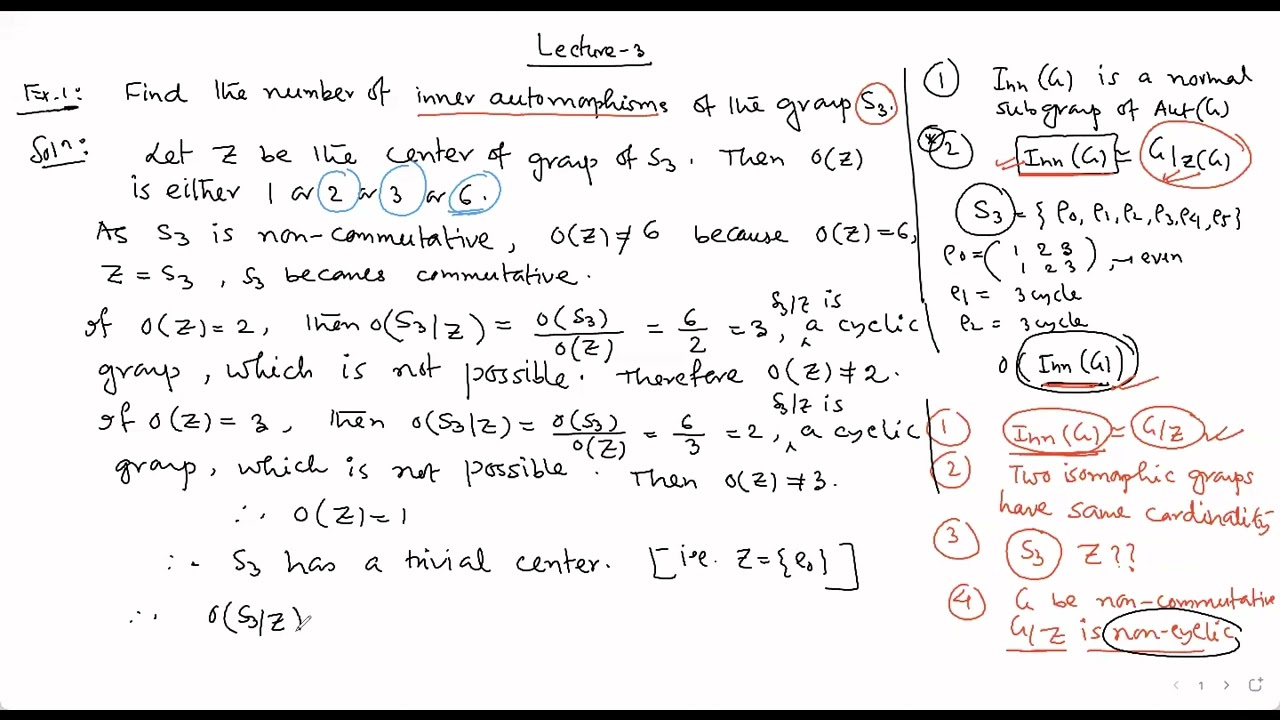 Lecture-3
Ex.1: Find the number of inner automorphisms of the group S₃.
Solⁿ: Let Z be the center of group of S₃. Then O(Z)
is either 1 or 2 or 3 or 6.
As S₃ is non-commutative, O(Z) ≠ 6 because O(Z) = 6,
Z = S₃, S₃ becomes commutative.
If O(Z) = 2, then O(S₃|Z) = O(S₃)/O(Z) = 6/2 = 3, S₃/Z is a cyclic
group, which is not possible. Therefore O(Z) ≠ 2.
If O(Z) = 3, then O(S₃|Z) = O(S₃)/O(Z) = 6/3 = 2, S₃/Z is a cyclic
group, which is not possible. Then O(Z) ≠ 3.
∴ O(Z) = 1
∴ S₃ has a trivial center. [i.e. Z = {ρ₀}]
∴ O(S₃|Z)
① Inn (G) is a normal
subgroup of Aut(G)
* ② Inn (G) ≅ G/Z(G)
S₃ = {ρ₀, ρ₁, ρ₂, ρ₃, ρ₄, ρ₅}
ρ₀ = (1 2 3 / 1 2 3), → even
ρ₁ = 3 cycle
ρ₂ = 3 cycle
O (Inn (G))
① Inn (G) ≅ G/Z
② Two isomorphic groups
have same cardinality
③ S₃ Z??
④ G be non-commutative
G/Z is non-cyclic
1